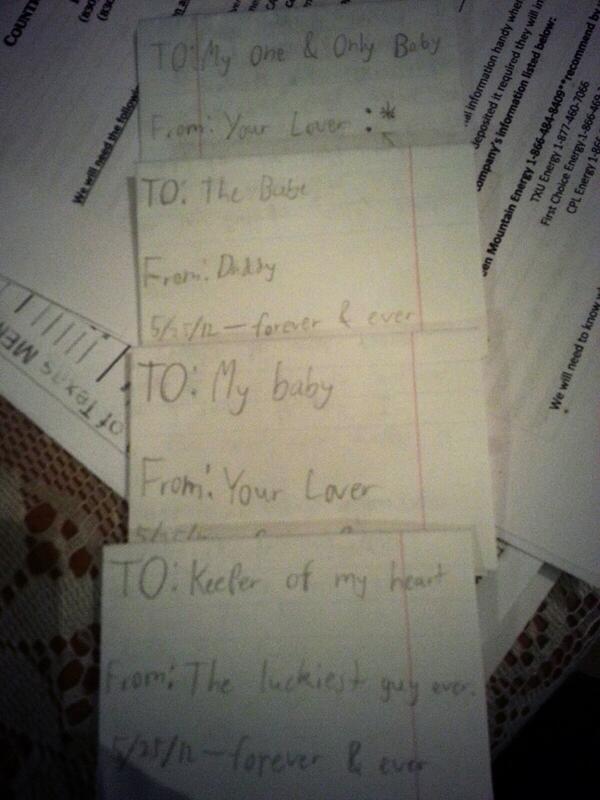 COUNT
(830
(830
We will need the followi
of Texas MEN
al information handy whe
deposited it required they will in
company's information listed below:
en Mountain Energy 1-866-484-8409**recommend by
TXU Energy 1-877-460-7066
First Choice Energy 1-866-469-
CPL Energy 1-866-
We will need to know w
TO: My One & Only Baby
From: Your Lover :*
TO: The Babe
From: Daddy
5/25/12 — forever & ever
TO: My baby
From: Your Lover
TO: Keeper of my heart
From: The luckiest guy ever.
5/25/12 — forever & ever